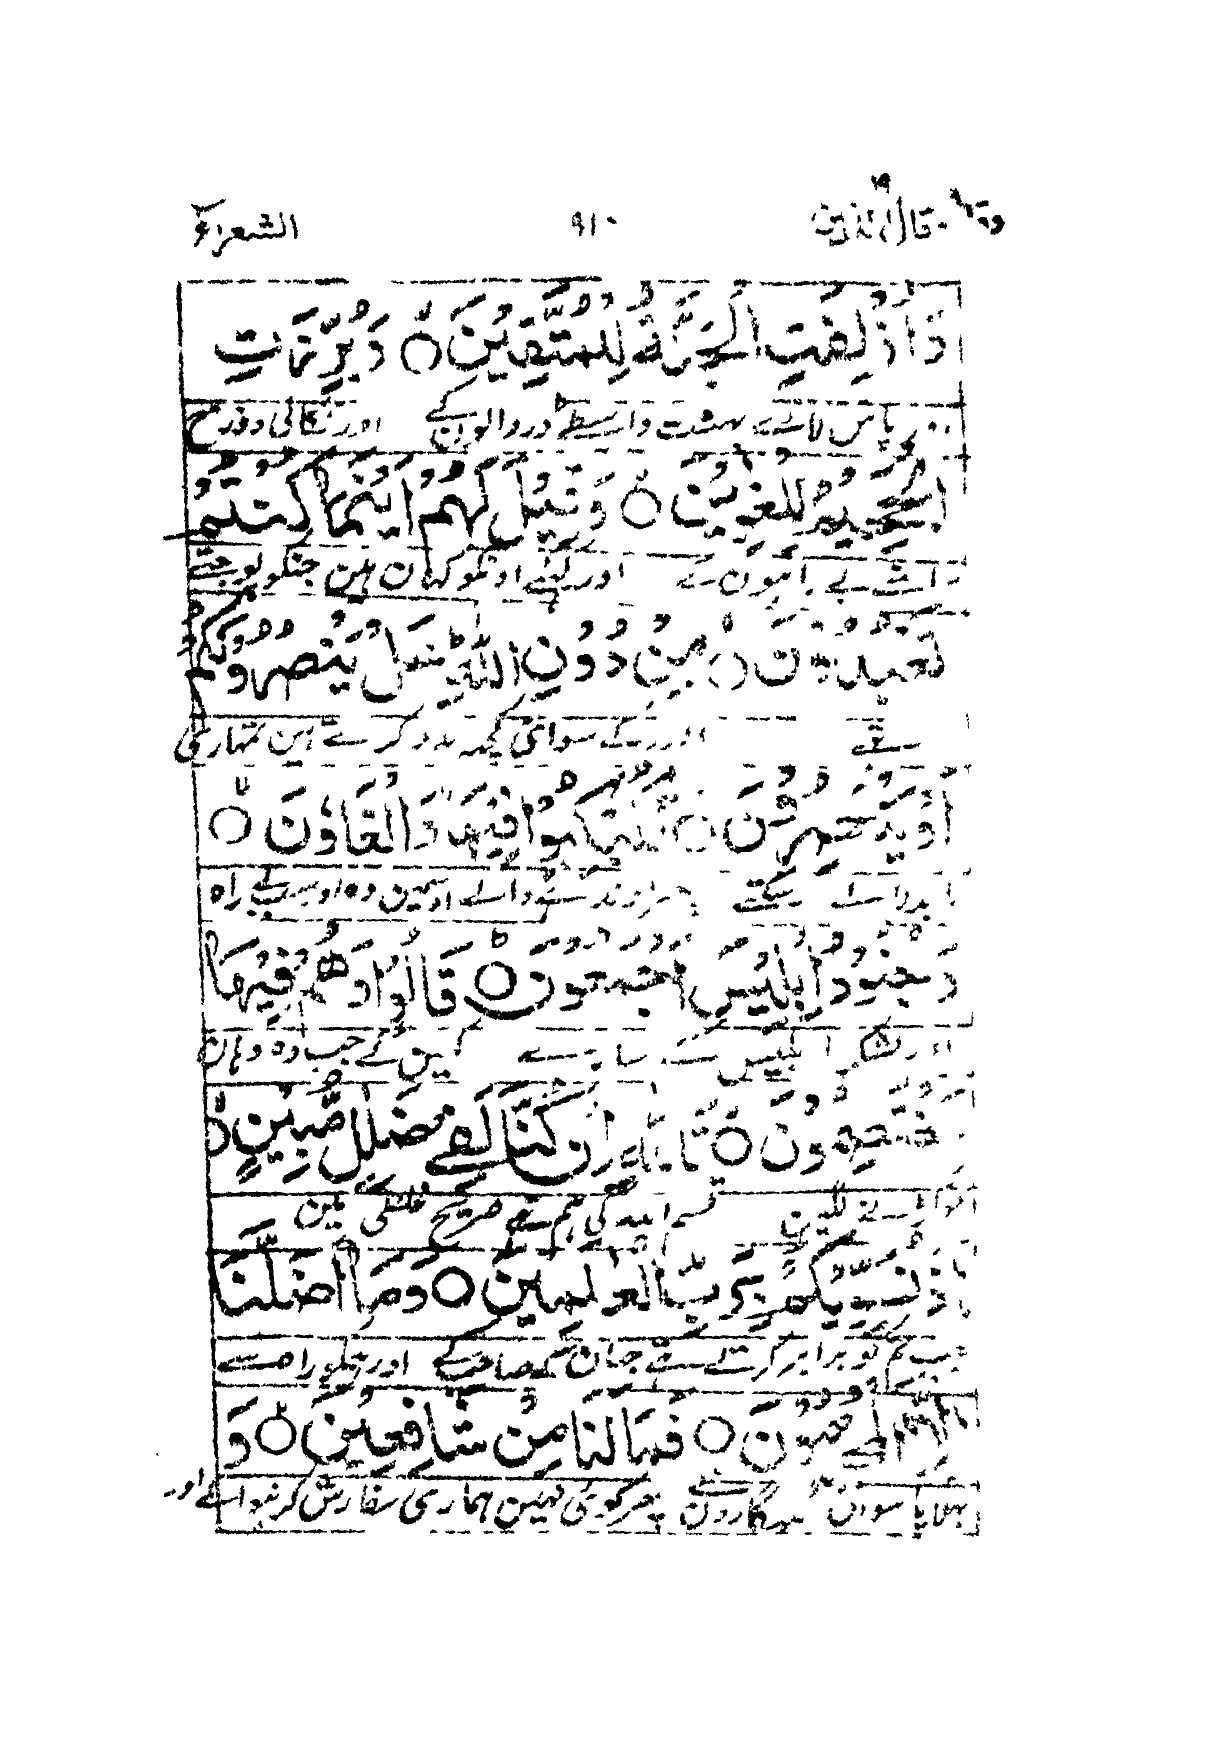 وقال الذین ۱۹ ۹۱۰ الشعراء
وَاُزْلِفَتِ الْجَنَّةُ لِلْمُتَّقِيْنَ ○ وَبُرِّزَتِ
اور پاس لائے بہشت واسطے ڈر والون کے اور نکالی دوزخ
الْجَحِيْمُ لِلْغٰوِيْنَ ○ وَقِيْلَ لَهُمْ اَيْنَمَا كُنْتُمْ
بے راہون کے اور کہئے اونکو کہان ہین جنکو پوجتے
تَعْبُدُوْنَ ○ مِنْ دُوْنِ اللّٰهِ هَلْ يَنْصُرُوْنَكُمْ
تھے سوائے کچھ مدد کرتے ہین تمہاری
اَوْ يَنْتَصِرُوْنَ ○ فَكُبْكِبُوْا فِيْهَا وَالْغَاوٗنَ ○
یا بدلا لے سکتے پھر اوندھے ڈالے اوسمین وہ اور سب بے راہ
وَجُنُوْدُ اِبْلِيْسَ اَجْمَعُوْنَ ○ قَالُوْا وَهُمْ فِيْهَا
اور لشکر ابلیس کے سارے کہین گے جب وہ وہان
يَخْتَصِمُوْنَ ○ تَاللّٰهِ اِنْ كُنَّا لَفِيْ ضَلٰلٍ مُّبِيْنٍ ○
لگین قسم اللہ کی ہم تھے صریح غلطی مین
اِذْ نُسَوِّيْكُمْ بِرَبِّ الْعٰلَمِيْنَ ○ وَمَا اَضَلَّنَا
جب تم کو برابر کرتے تھے جہان کے صاحب کے اور ہمکو راہ سے
اِلَّا الْمُجْرِمُوْنَ ○ فَمَا لَنَا مِنْ شَافِعِيْنَ ○ وَ
بھلایا سو ان گنہگارون نے پھر کوئی نہین ہماری سفارش کرنیوالے اور